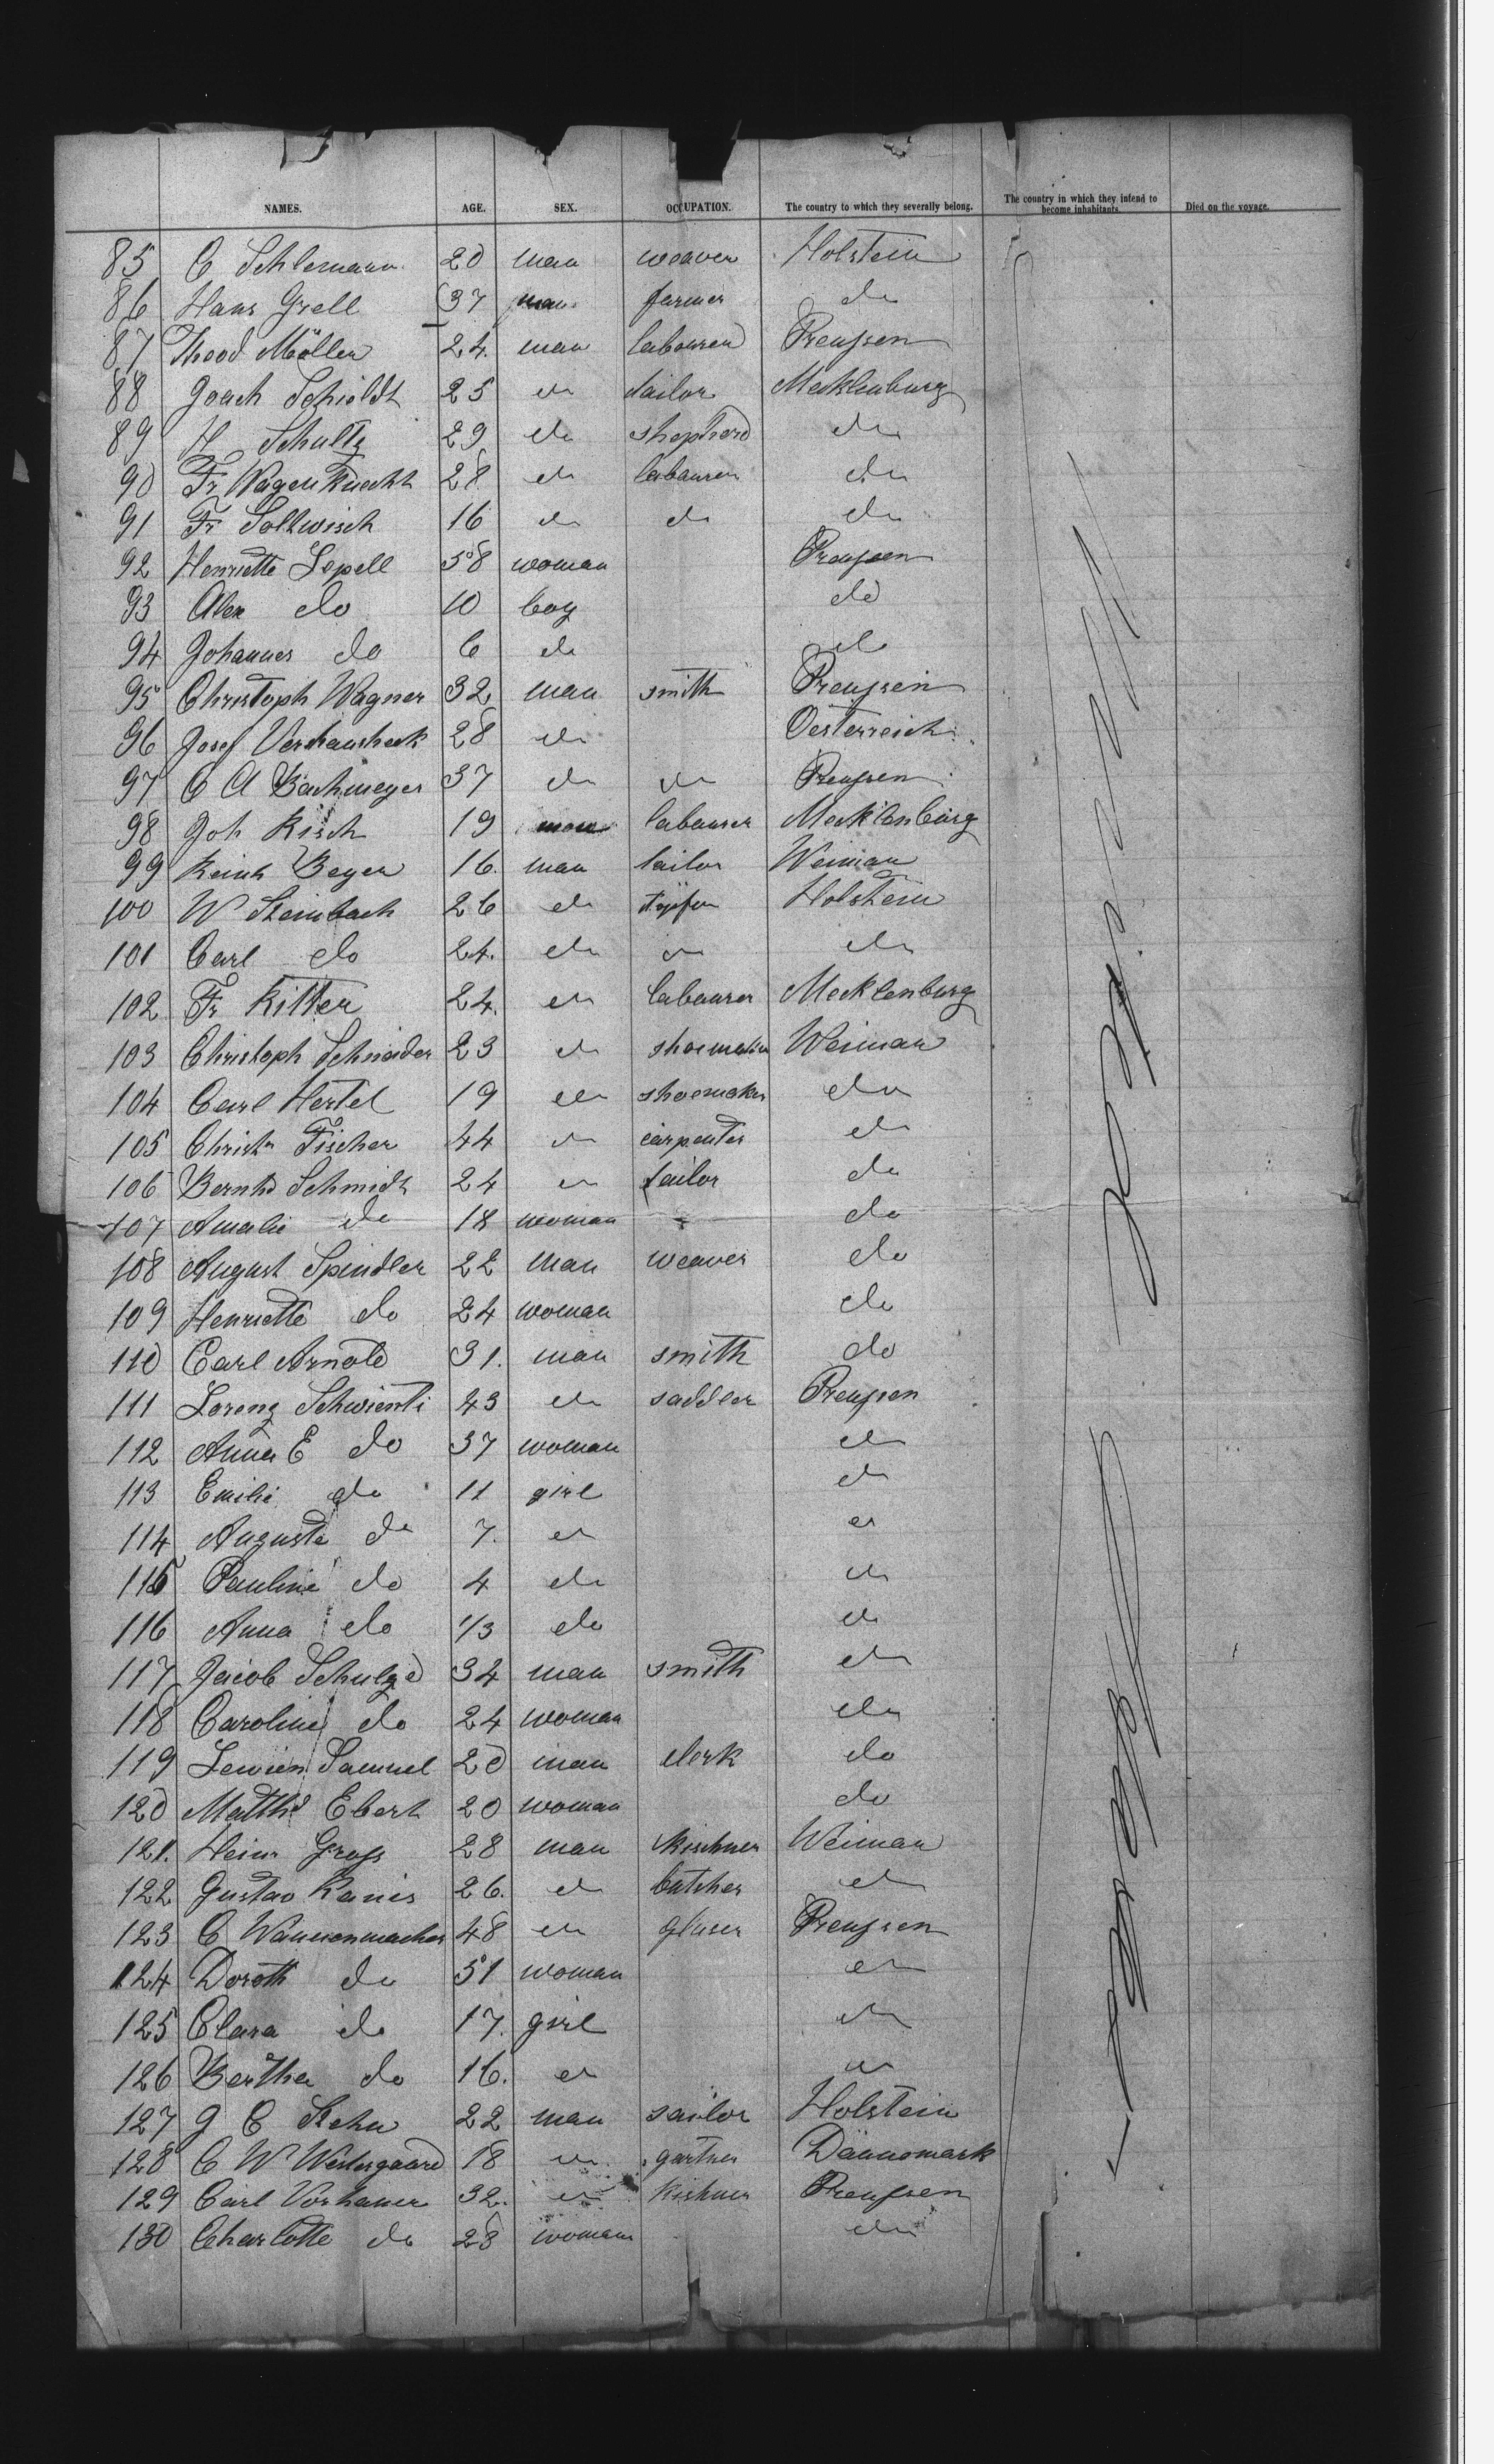 NAMES. AGE. SEX. OCCUPATION. The country to which they severally belong. The country in which they intend to become inhabitants. Died on the voyage.
85 C Schlemann 20 man weaver Holstein
86 Hans Grell 37 man farmer do
87 Theod Möller 24. man labourer Preussen
88 Joach Schieldt 25 do tailor Mecklenburg
89 H Schultz 29 do shepherd do
90 Fr Wagenknecht 28 do labourer do
91 Fr Sollwisch 16 do do do
92 Henriette Lepell 38 woman Preussen
93 Alex do 10 boy do
94 Johannes do 6 do do
95 Christoph Wagner 32 man smith Preussen
96 Josef 28 do Oesterreich
97 C A Bachmeyer 37 do do Preussen
98 Joh Risch 19 man labourer Mecklenburg
99 Reinh Beyer 16. man tailor Weimar
100 W Steinbach 26 do töpfer Holstein
101 Carl do 24. do do do
102 Fr Ritter 24. do labourer Mecklenburg
103 Christoph Schneider 23 do shoemaker Weimar
104 Carl Hertel 19 do shoemaker do
105 Christn Fischer 44 do carpenter do
106 Bernhd Schmidt 24 do tailor do
107 Amalie do 18 woman do
108 August Spindler 22 man weaver do
109 Henriette do 24 woman do
110 Carl Arnold 31. man smith do
111 Lorenz Schwienti 43 do saddler Preussen
112 Anna E do 37 woman do
113 Emilie do 11 girl do
114 Auguste do 7. do do
115 Pauline do 4 do do
116 Anna do 1/3 do do
117 Jacob Schulze 34 man smith do
118 Caroline do 24 woman do
119 Lewien Samuel 20 man clerk do
120 Mathe Ebert 20 woman do
121. Heinr Gross 28 man kirschner Weimar
122 Gustav Ranis 26. do butcher do
123 C Wannenmacher 48 do glaser Preussen
124 Doroth do 51 woman do
125 Clara do 17. girl do
126 Bertha do 16. do do
127 J C Stehn 22 man sailor Holstein
128 C W Westergaard 18 do gartner Dännemark
129 Carl Vorhauer 32. do Kishner Preussen
130 Charlotte do 28 woman do